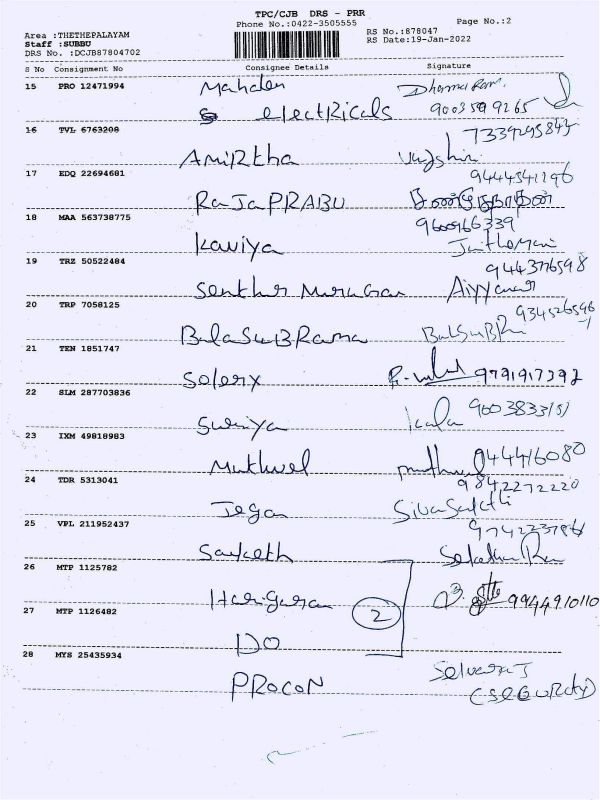 TPC/CJB DRS - PRR
Phone No.:0422-3505555 Page No.:2
Area :THETHEPALAYAM RS No.:878047
Staff :SUBBU RS Date:19-Jan-2022
DRS No. :DCJB87804702
S No Consignment No Consignee Details Signature
15 PRO 12471994 Mahden
electRicals 9003599265
16 TVL 6763208
AmiRtha
17 EDQ 22694681 9444341196
RaJaPRABU
18 MAA 563738775 9600966339
Kaviya
19 TRZ 50522484 9443776598
Senthur Murugan Aiyyanar
20 TRP 7058125 934526596
BalaSuBRama
21 TEN 1851747
Solerx 9791917392
22 SLM 287703836
Suriya kala
23 IXM 49818983
Muthuvel 944416080
24 TDR 5313041 9842272220
Jegan SivaSakthi
25 VPL 211952437
Sayketh
26 MTP 1125782
Harigaran 9944910110
27 MTP 1126482 2
DO
28 MYS 25435934
PROCON (SecURity)